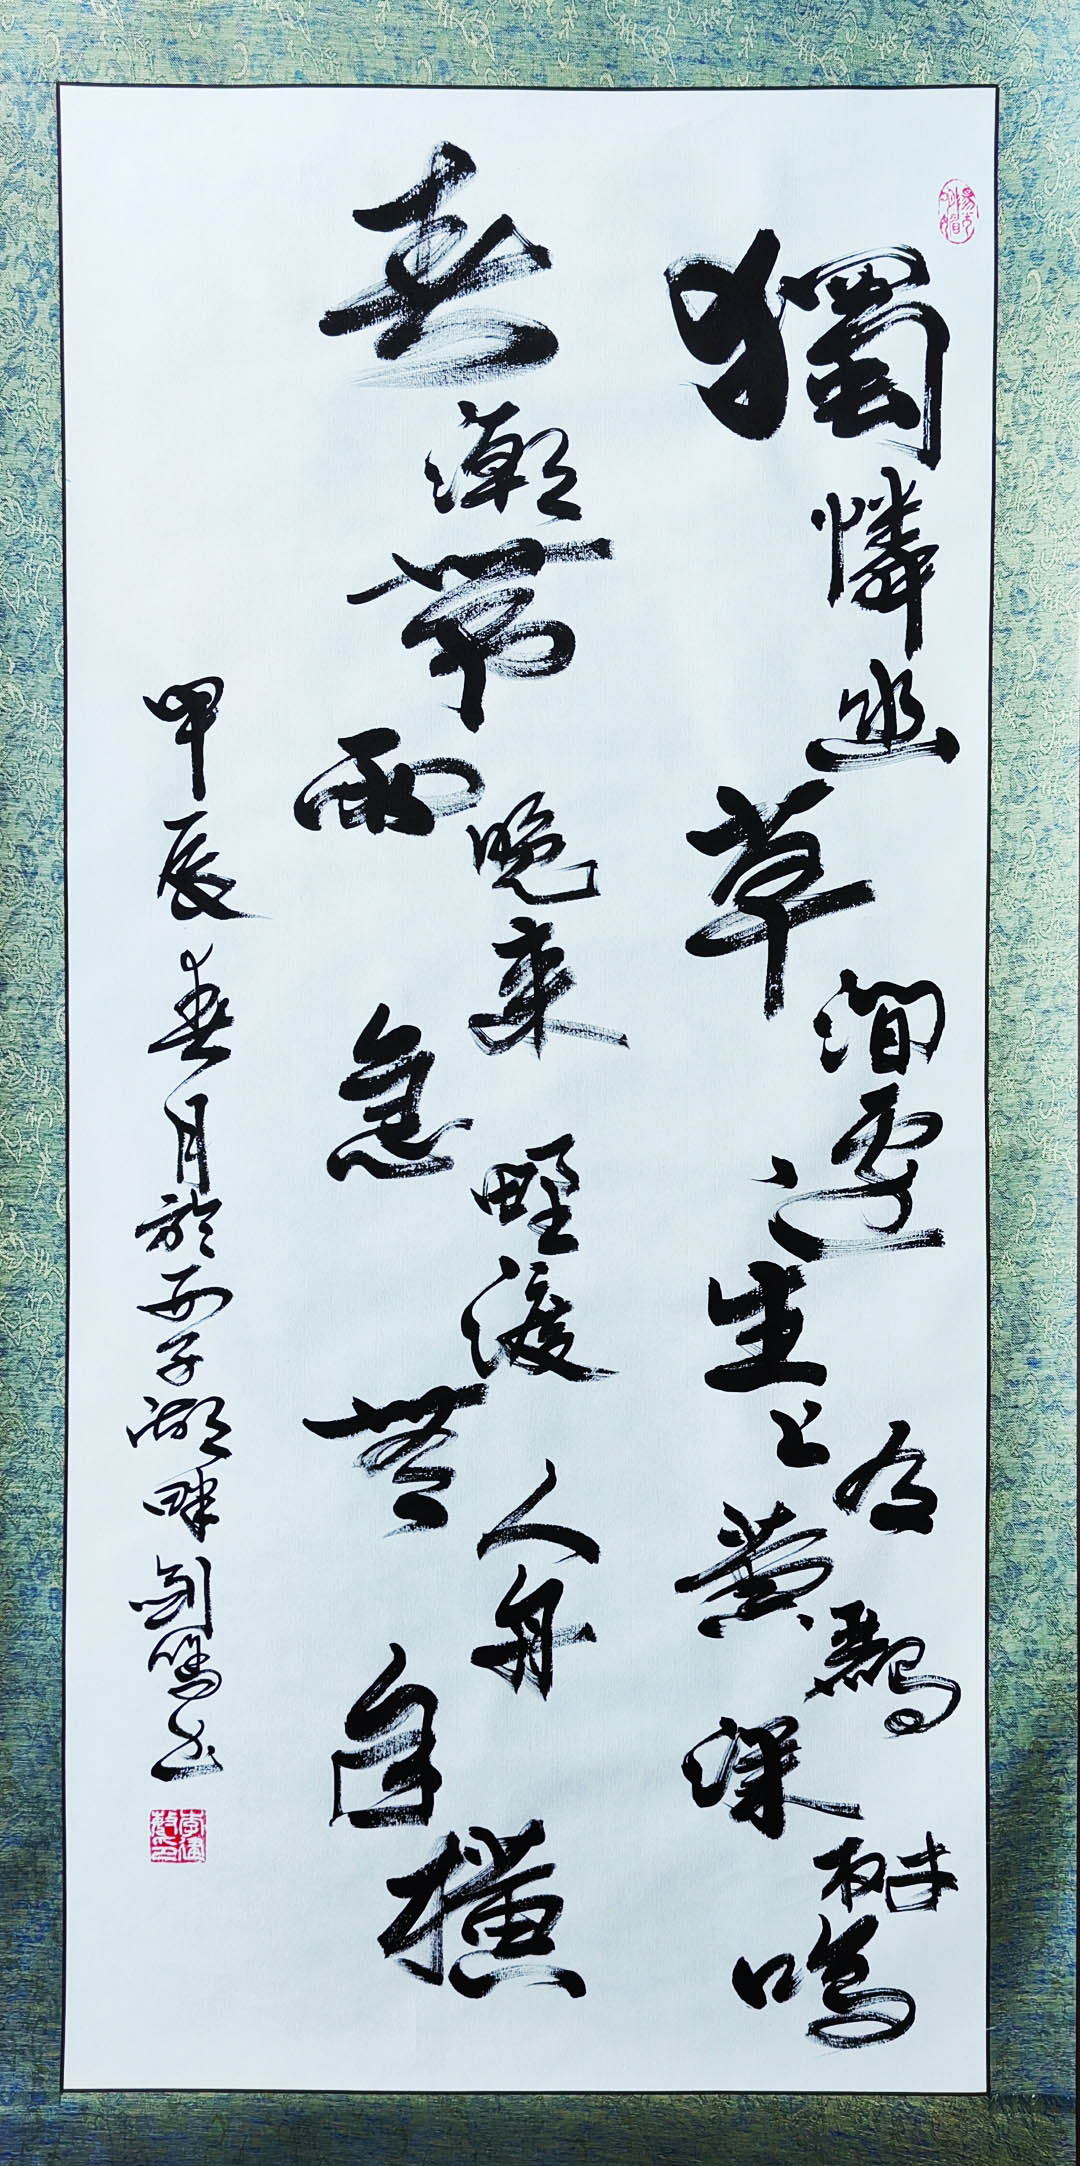 獨憐幽草澗邊生上有黃鸝深樹鳴
春潮带雨晚来急野渡無人舟自橫
甲辰春月於西子湖畔剑鸣书